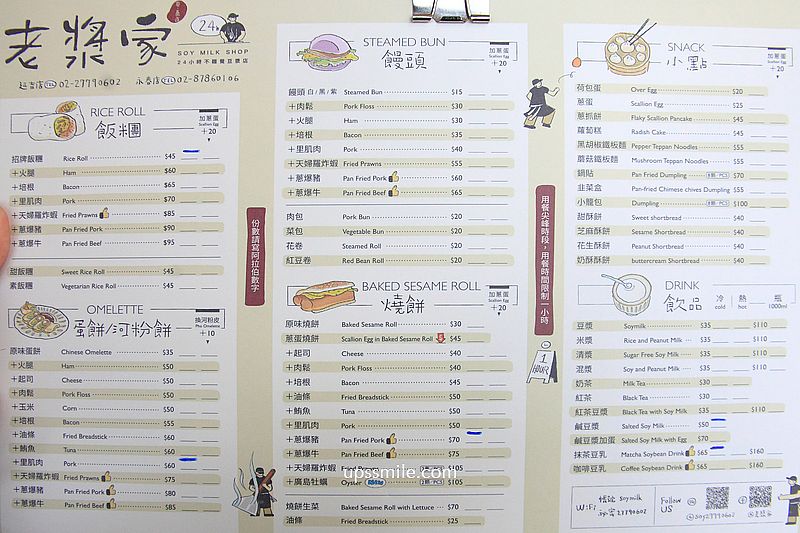 老漿家
24h
SOY MILK SHOP
24小時不睡覺豆漿店
超吉店 TEL 02-27790602 永春店 TEL 02-87860106
RICE ROLL
飯糰
加蔥蛋
Scallion Egg
+20
招牌飯糰 Rice Roll $45
+火腿 Ham $60
+培根 Bacon $65
+里肌肉 Pork $70
+天婦羅炸蝦 Fried Prawns $85
+蔥爆豬 Pan Fried Pork $90
+蔥爆牛 Pan Fried Beef $95
甜飯糰 Sweet Rice Roll $45
素飯糰 Vegetarian Rice Roll $45
OMELETTE
蛋餅/河粉餅
換河粉皮
Pho Omelette
+10
原味蛋餅 Chinese Omelette $35
+火腿 Ham $50
+起司 Cheese $50
+肉鬆 Pork Floss $50
+玉米 Corn $55
+培根 Bacon $55
+油條 Fried Breadstick $60
+鮪魚 Tuna $60
+里肌肉 Pork $60
+天婦羅炸蝦 Fried Prawns $75
+蔥爆豬 Pan Fried Pork $80
+蔥爆牛 Pan Fried Beef $85
份數請寫阿拉伯數字
STEAMED BUN
饅頭
加蔥蛋
Scallion Egg
+20
饅頭 白/黑/紫 Steamed Bun $15
+肉鬆 Pork Floss $30
+火腿 Ham $30
+培根 Bacon $35
+里肌肉 Pork $40
+天婦羅炸蝦 Fried Prawns $55
+蔥爆豬 Pan Fried Pork $60
+蔥爆牛 Pan Fried Beef $65
肉包 Pork Bun $20
菜包 Vegetable Bun $20
花卷 Steamed Roll $20
紅豆卷 Red Bean Roll $20
BAKED SESAME ROLL
燒餅
加蔥蛋
Scallion Egg
+20
原味燒餅 Baked Sesame Roll $30
蔥蛋燒餅 Scallion Egg in Baked Sesame Roll $45
+起司 Cheese $40
+肉鬆 Pork Floss $40
+培根 Bacon $45
+油條 Fried Breadstick $50
+鮪魚 Tuna $50
+里肌肉 Pork $50
+蔥爆豬 Pan Fried Pork $70
+蔥爆牛 Pan Fried Beef $75
+天婦羅炸蝦 Fried Prawns $105
+廣島牡蠣 Oyster $105
燒餅生菜 Baked Sesame Roll with Lettuce $70
油條 Fried Breadstick $25
用餐尖峰時段,用餐時間限制一小時
1
HOUR
SNACK
小點
加蔥蛋
Scallion Egg
+20
荷包蛋 Over Egg $20
蔥蛋 Scallion Egg $25
蔥抓餅 Flaky Scallion Pancake $45
蘿蔔糕 Radish Cake $45
黑胡椒鐵板麵 Pepper Teppan Noodles $55
蘑菇鐵板麵 Mushroom Teppan Noodles $55
鍋貼 Pan Fried Dumpling $70
韭菜盒 Pan-fried Chinese chives Dumpling $55
小龍包 Dumpling $100
甜酥餅 Sweet shortbread $40
芝麻酥餅 Sesame Shortbread $40
花生酥餅 Peanut Shortbread $40
奶酥酥餅 buttercream Shortbread $40
DRINK
飲品
冷 cold 熱 hot 瓶 1000ml
豆漿 Soymilk $35 $110
米漿 Rice and Peanut Milk $35 $110
清漿 Sugar Free Soy Milk $35 $110
混漿 Soy and Peanut Milk $35 $110
奶茶 Milk Tea $30
紅茶 Black Tea $30
紅茶豆漿 Black Tea with Soy Milk $35 $110
鹹豆漿 Salted Soy Milk $50
鹹豆漿加蛋 Salted Soy Milk with Egg $70
抹茶豆乳 Matcha Soybean Drink $65 $160
咖啡豆乳 Coffee Soybean Drink $65 $160
WiFi
帳號 Soymilk
密碼 27790602
Follow
US
upssmile.com